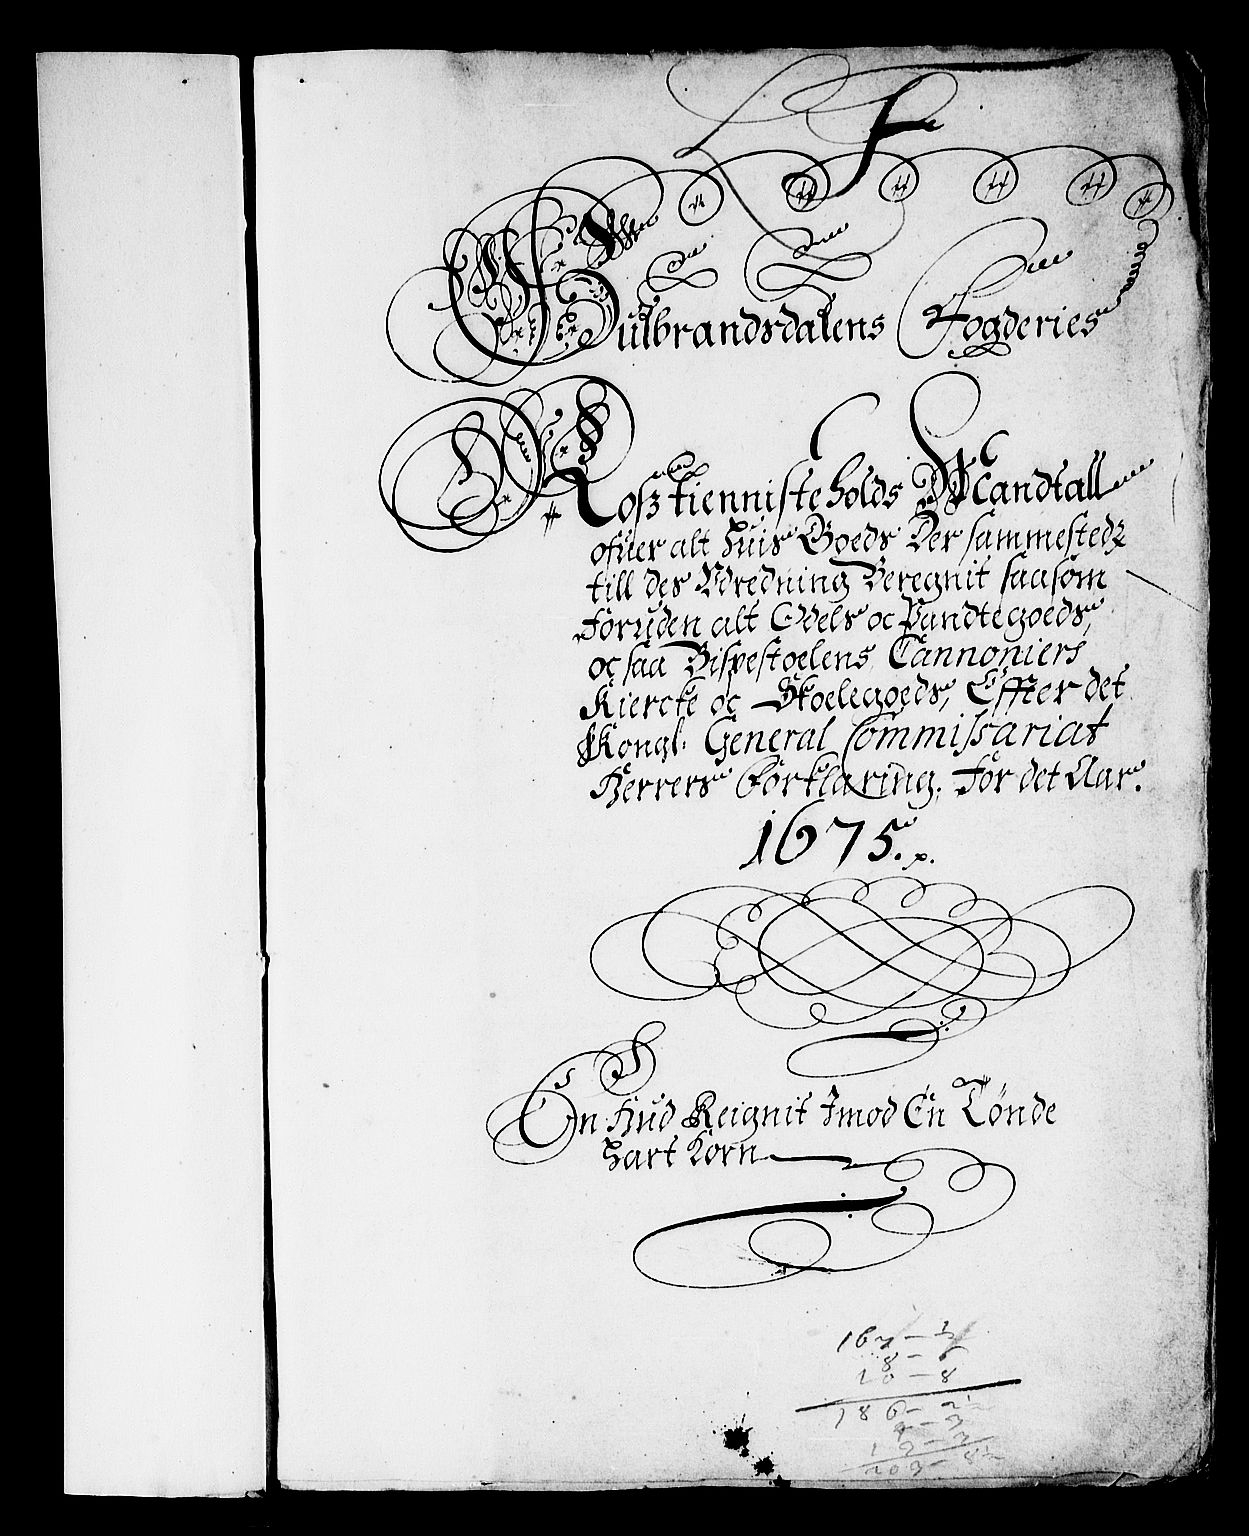 F
Gulbrandsdalens Fogderies
Rosz tienniste holds Mandtall
ofuer alt huis Goeds Der sammestedz
till des Udredning Beregnit saasom
Foruden alt Odels oc Pandtegoeds,
oc saa Bispestoelens, Cannoniers
Kiercke oc Skoelegoeds, Effter det
Kongl: General Commissariat
Herrers Forklaring. For det Aar.
1675.
En Hud Reignit Imod En Tönde
hart Korn
8 - 6
10 - 8
186 -